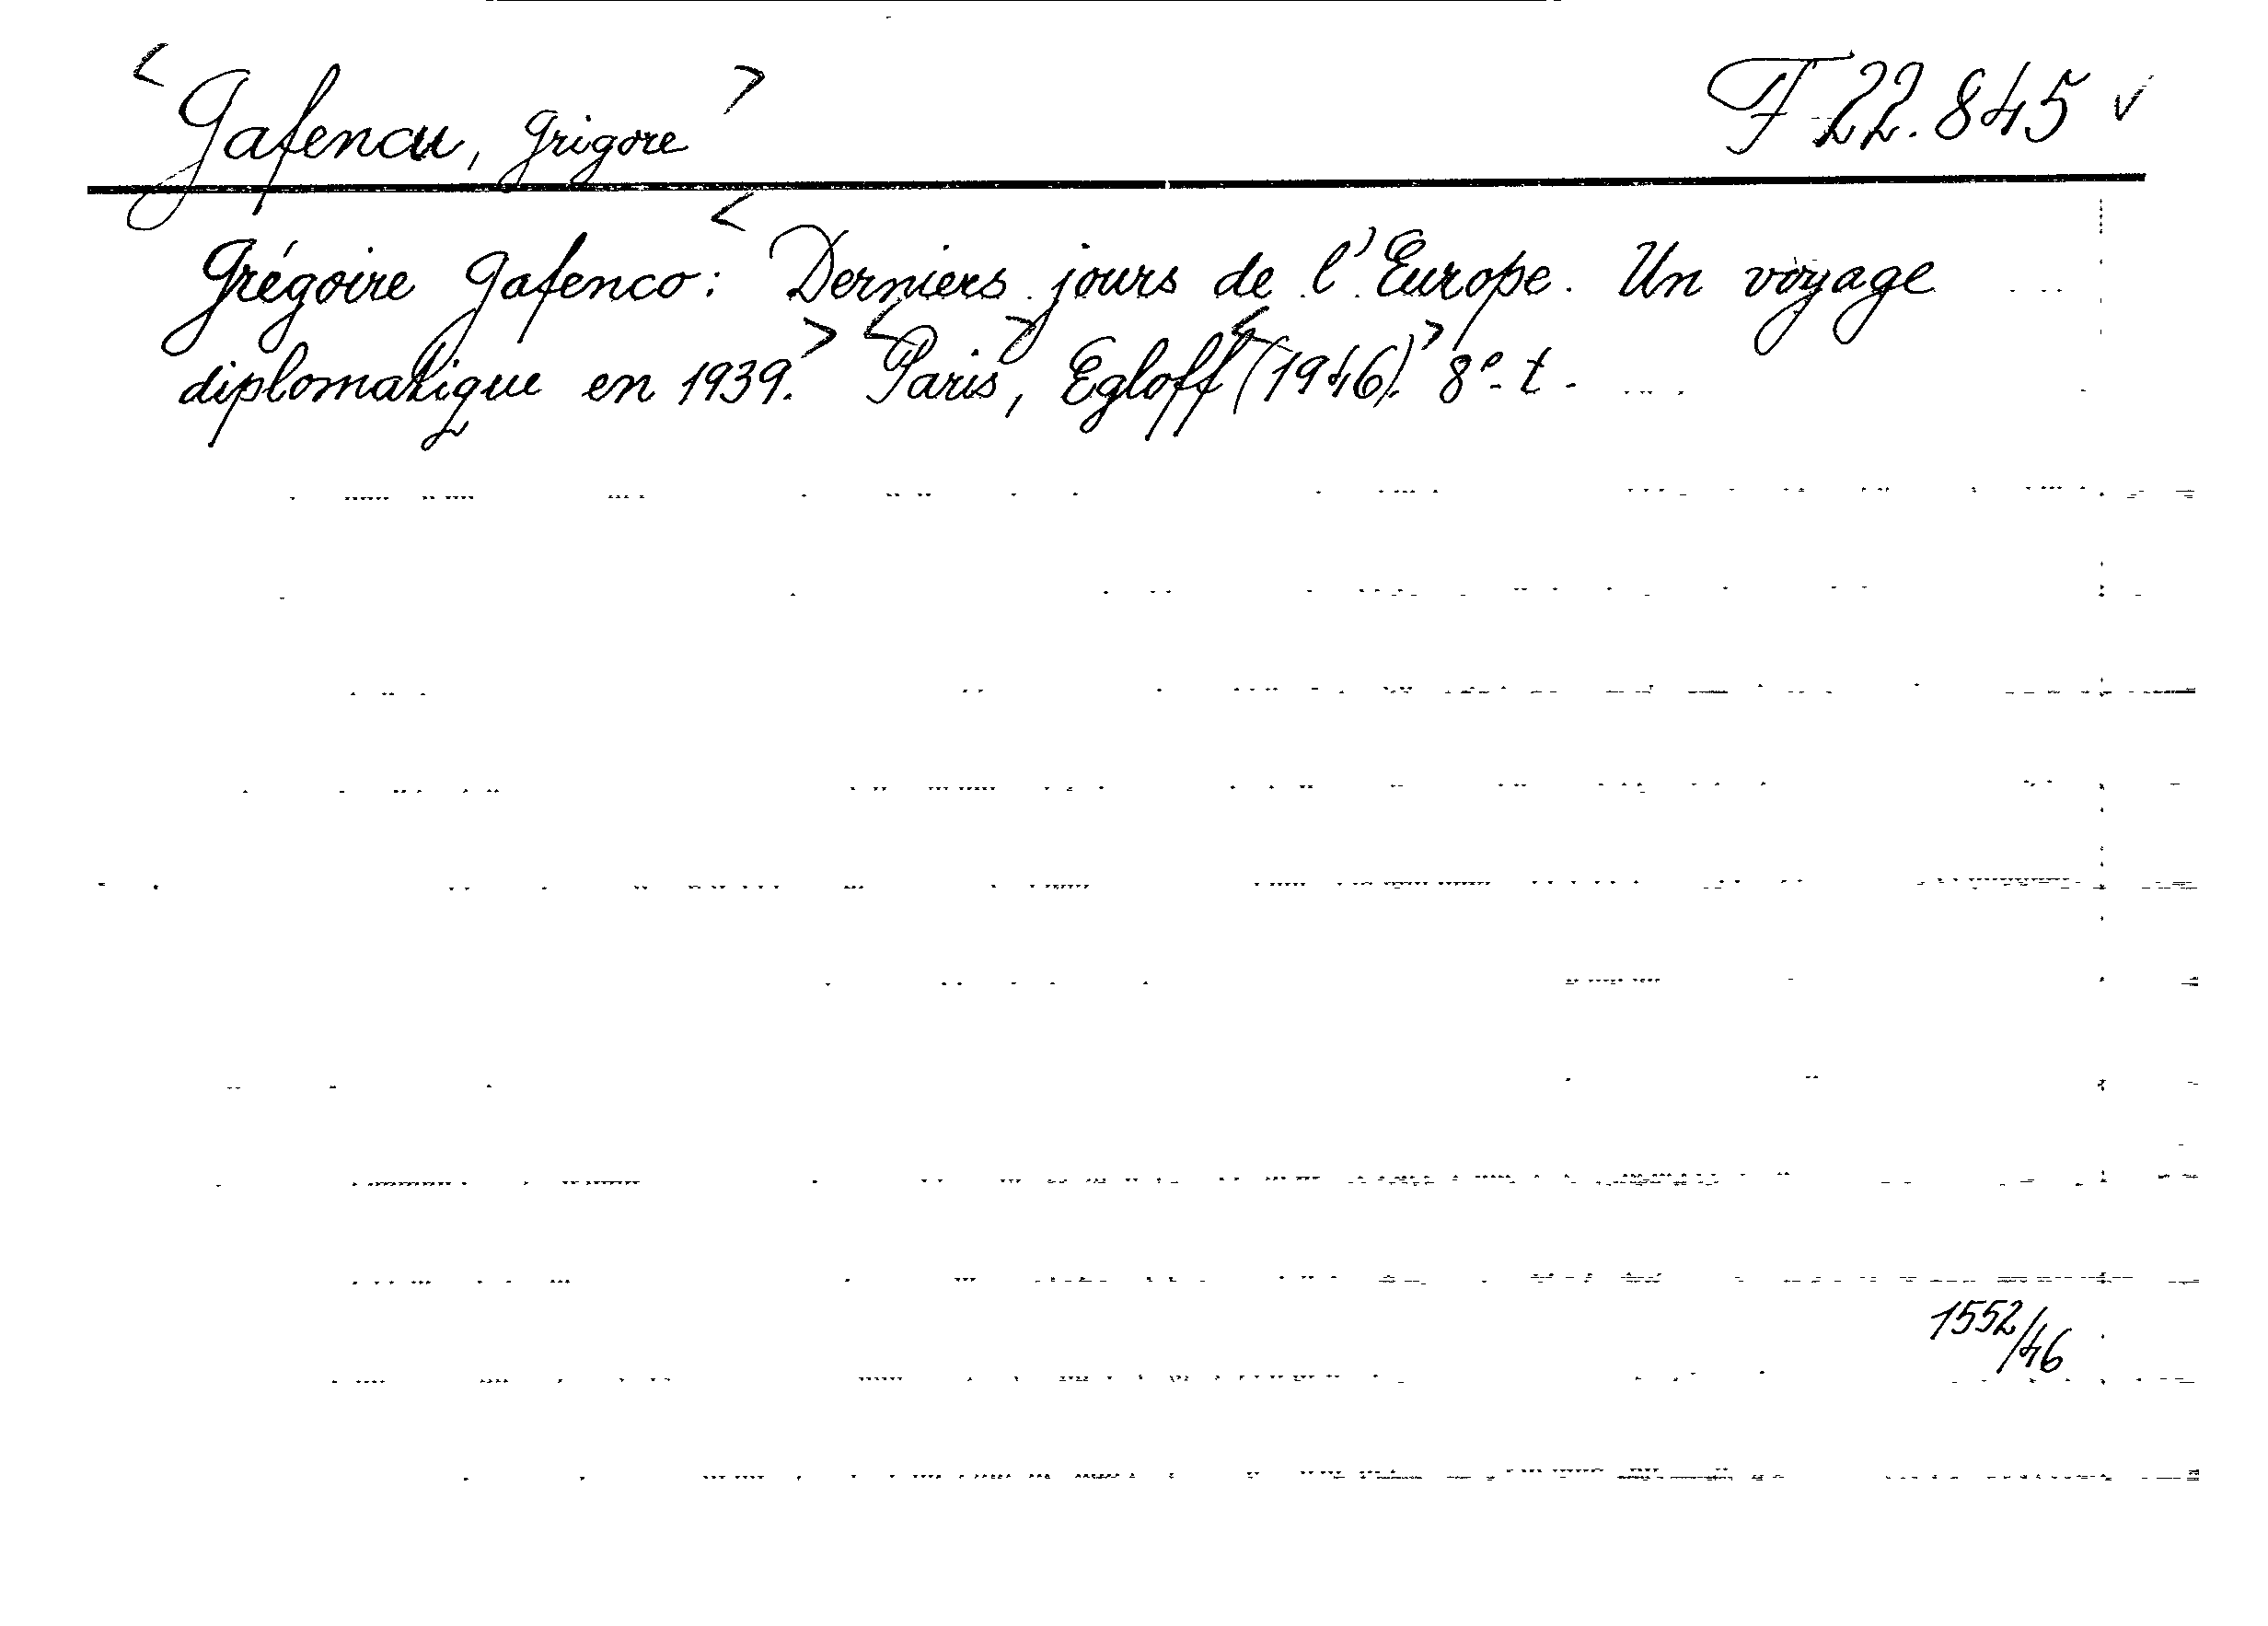 <Gafencu, Grigore> F 22.845 ✓
Grégoire Gafenco: <Derniers jours de l'Europe. Un voyage
diplomatique en 1939.> <Paris>, Egloff <(1946).> 8°- t.
1552/46